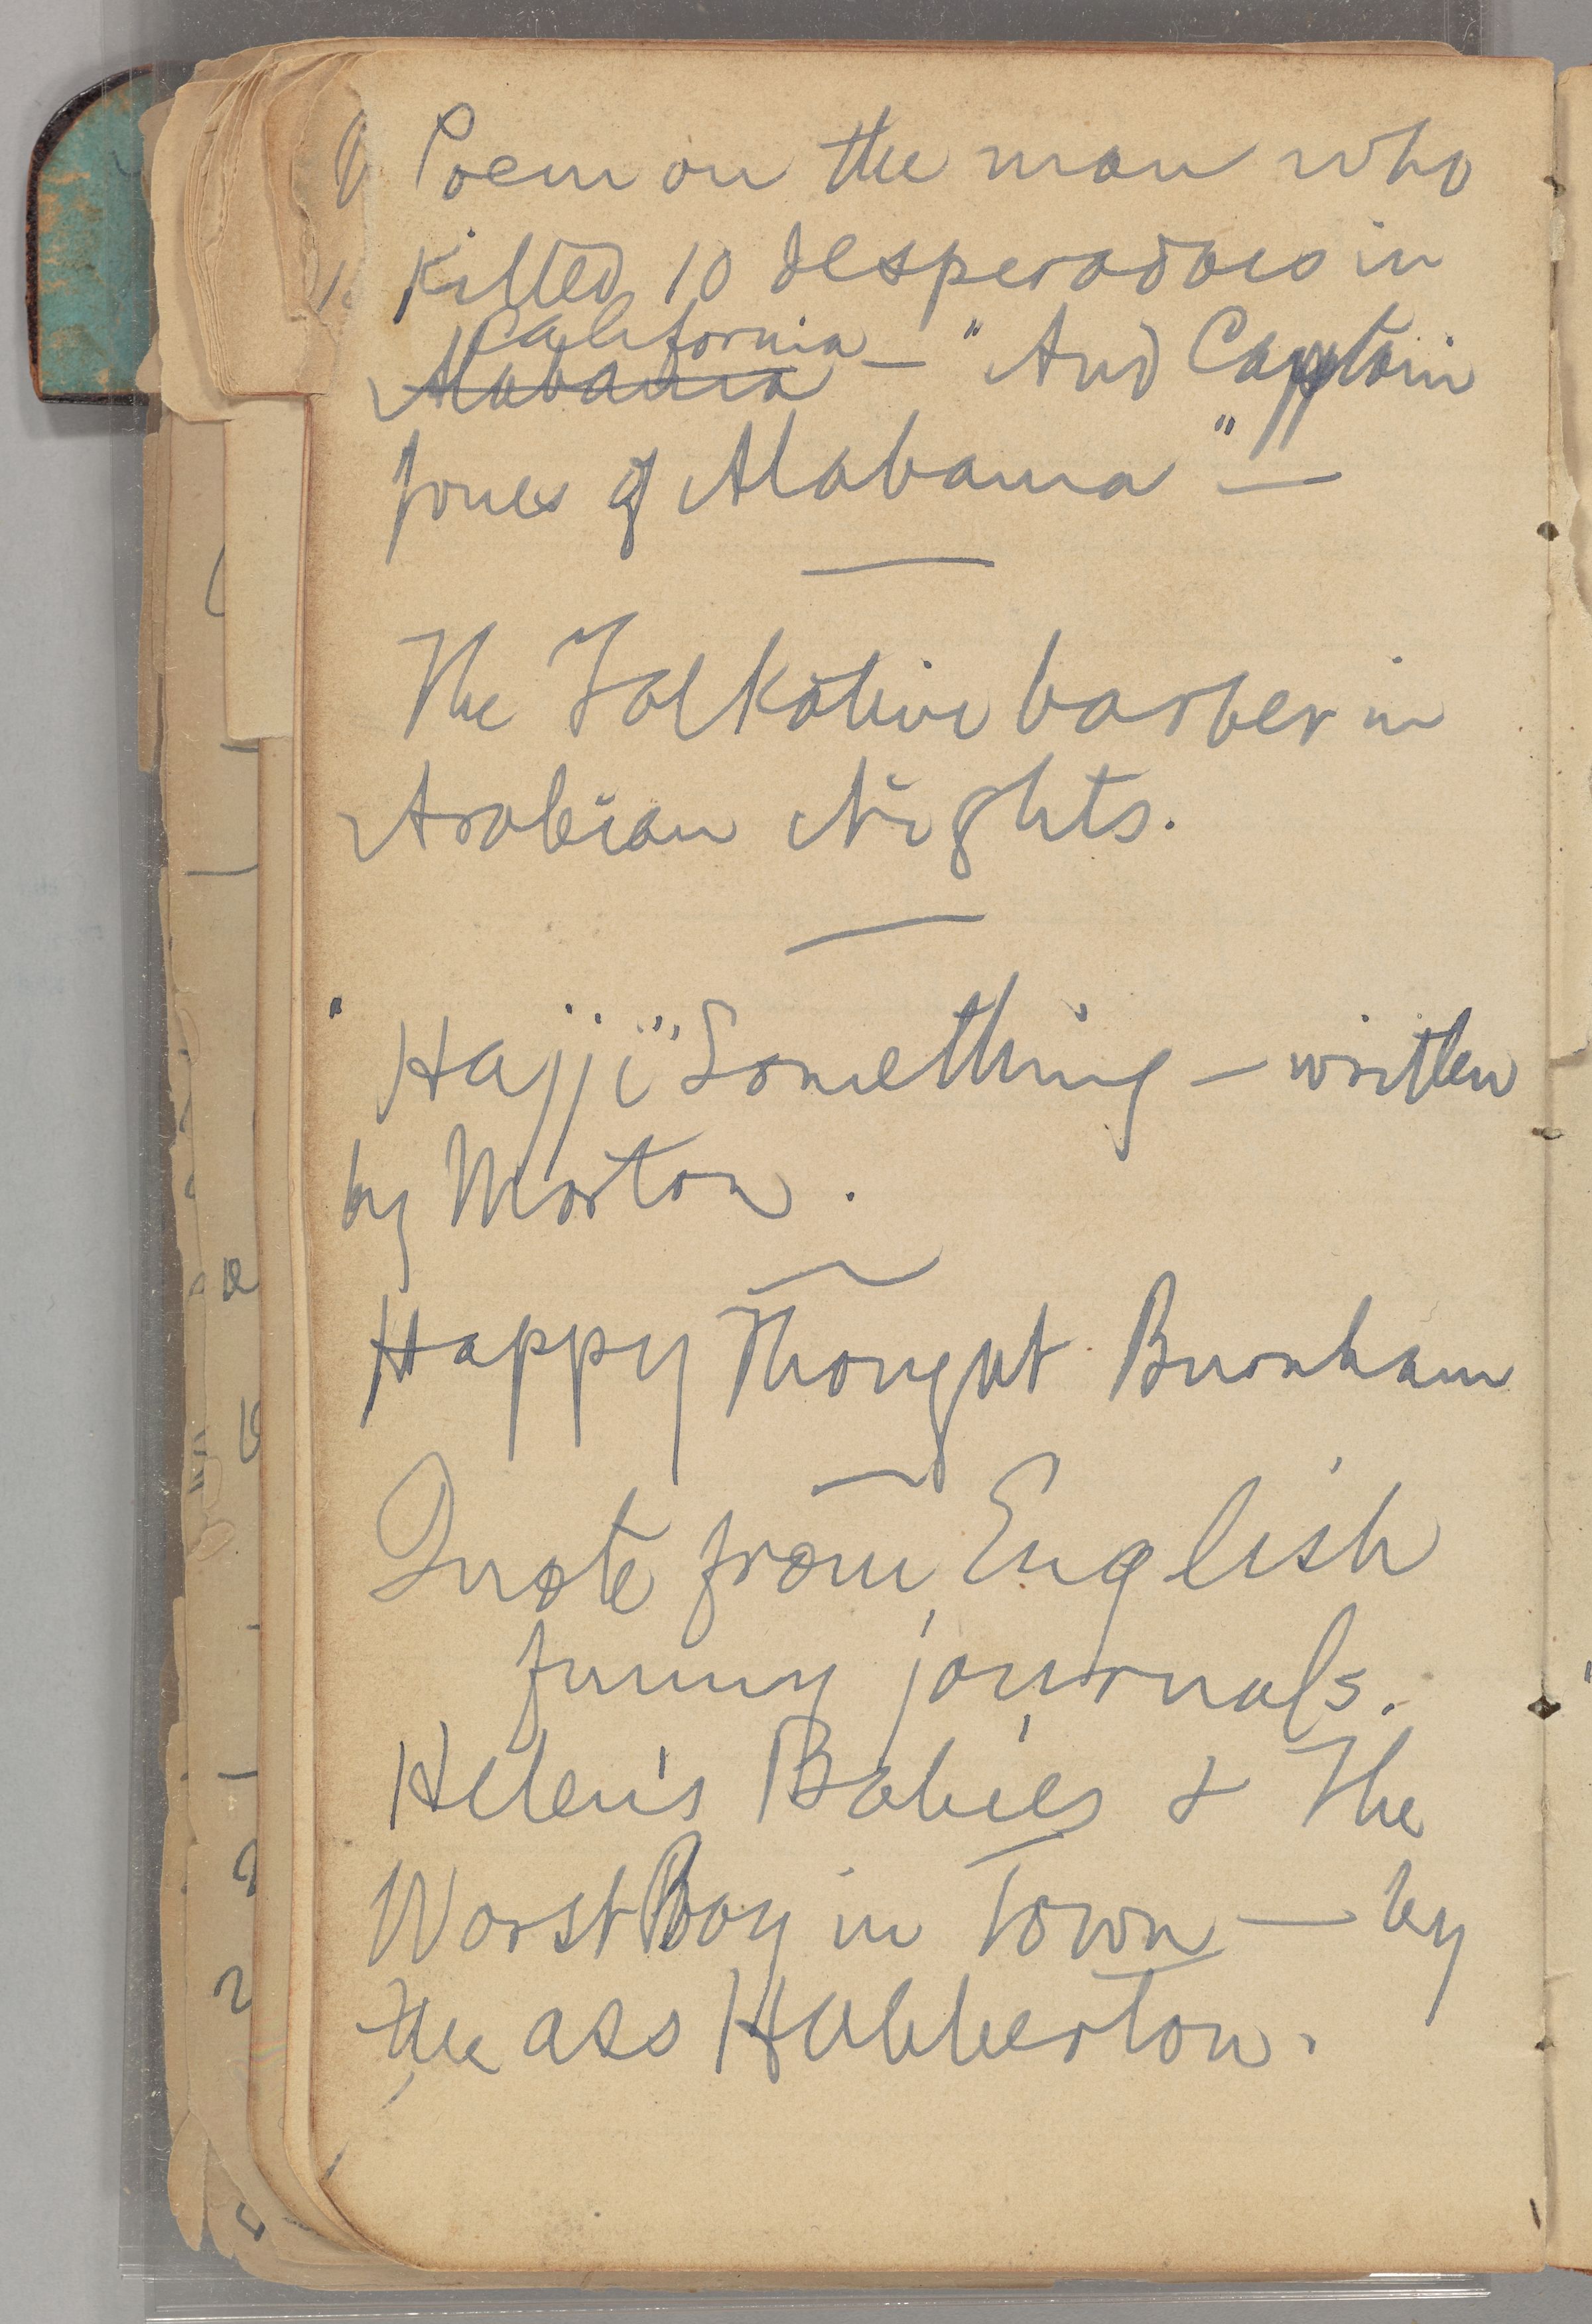 Poem on the man who
killed 10 desperadoes in
California
Alabama — "And Captain
Jones of Alabama" —
The Talkative barber in
Arabian Nights.
"Hajji" Something — written
by Morton.
Happy Thought Burnham
Quote from English
funny journals.
Helen's Babies & The
Worst Boy in Town — by
the ass Habberton.